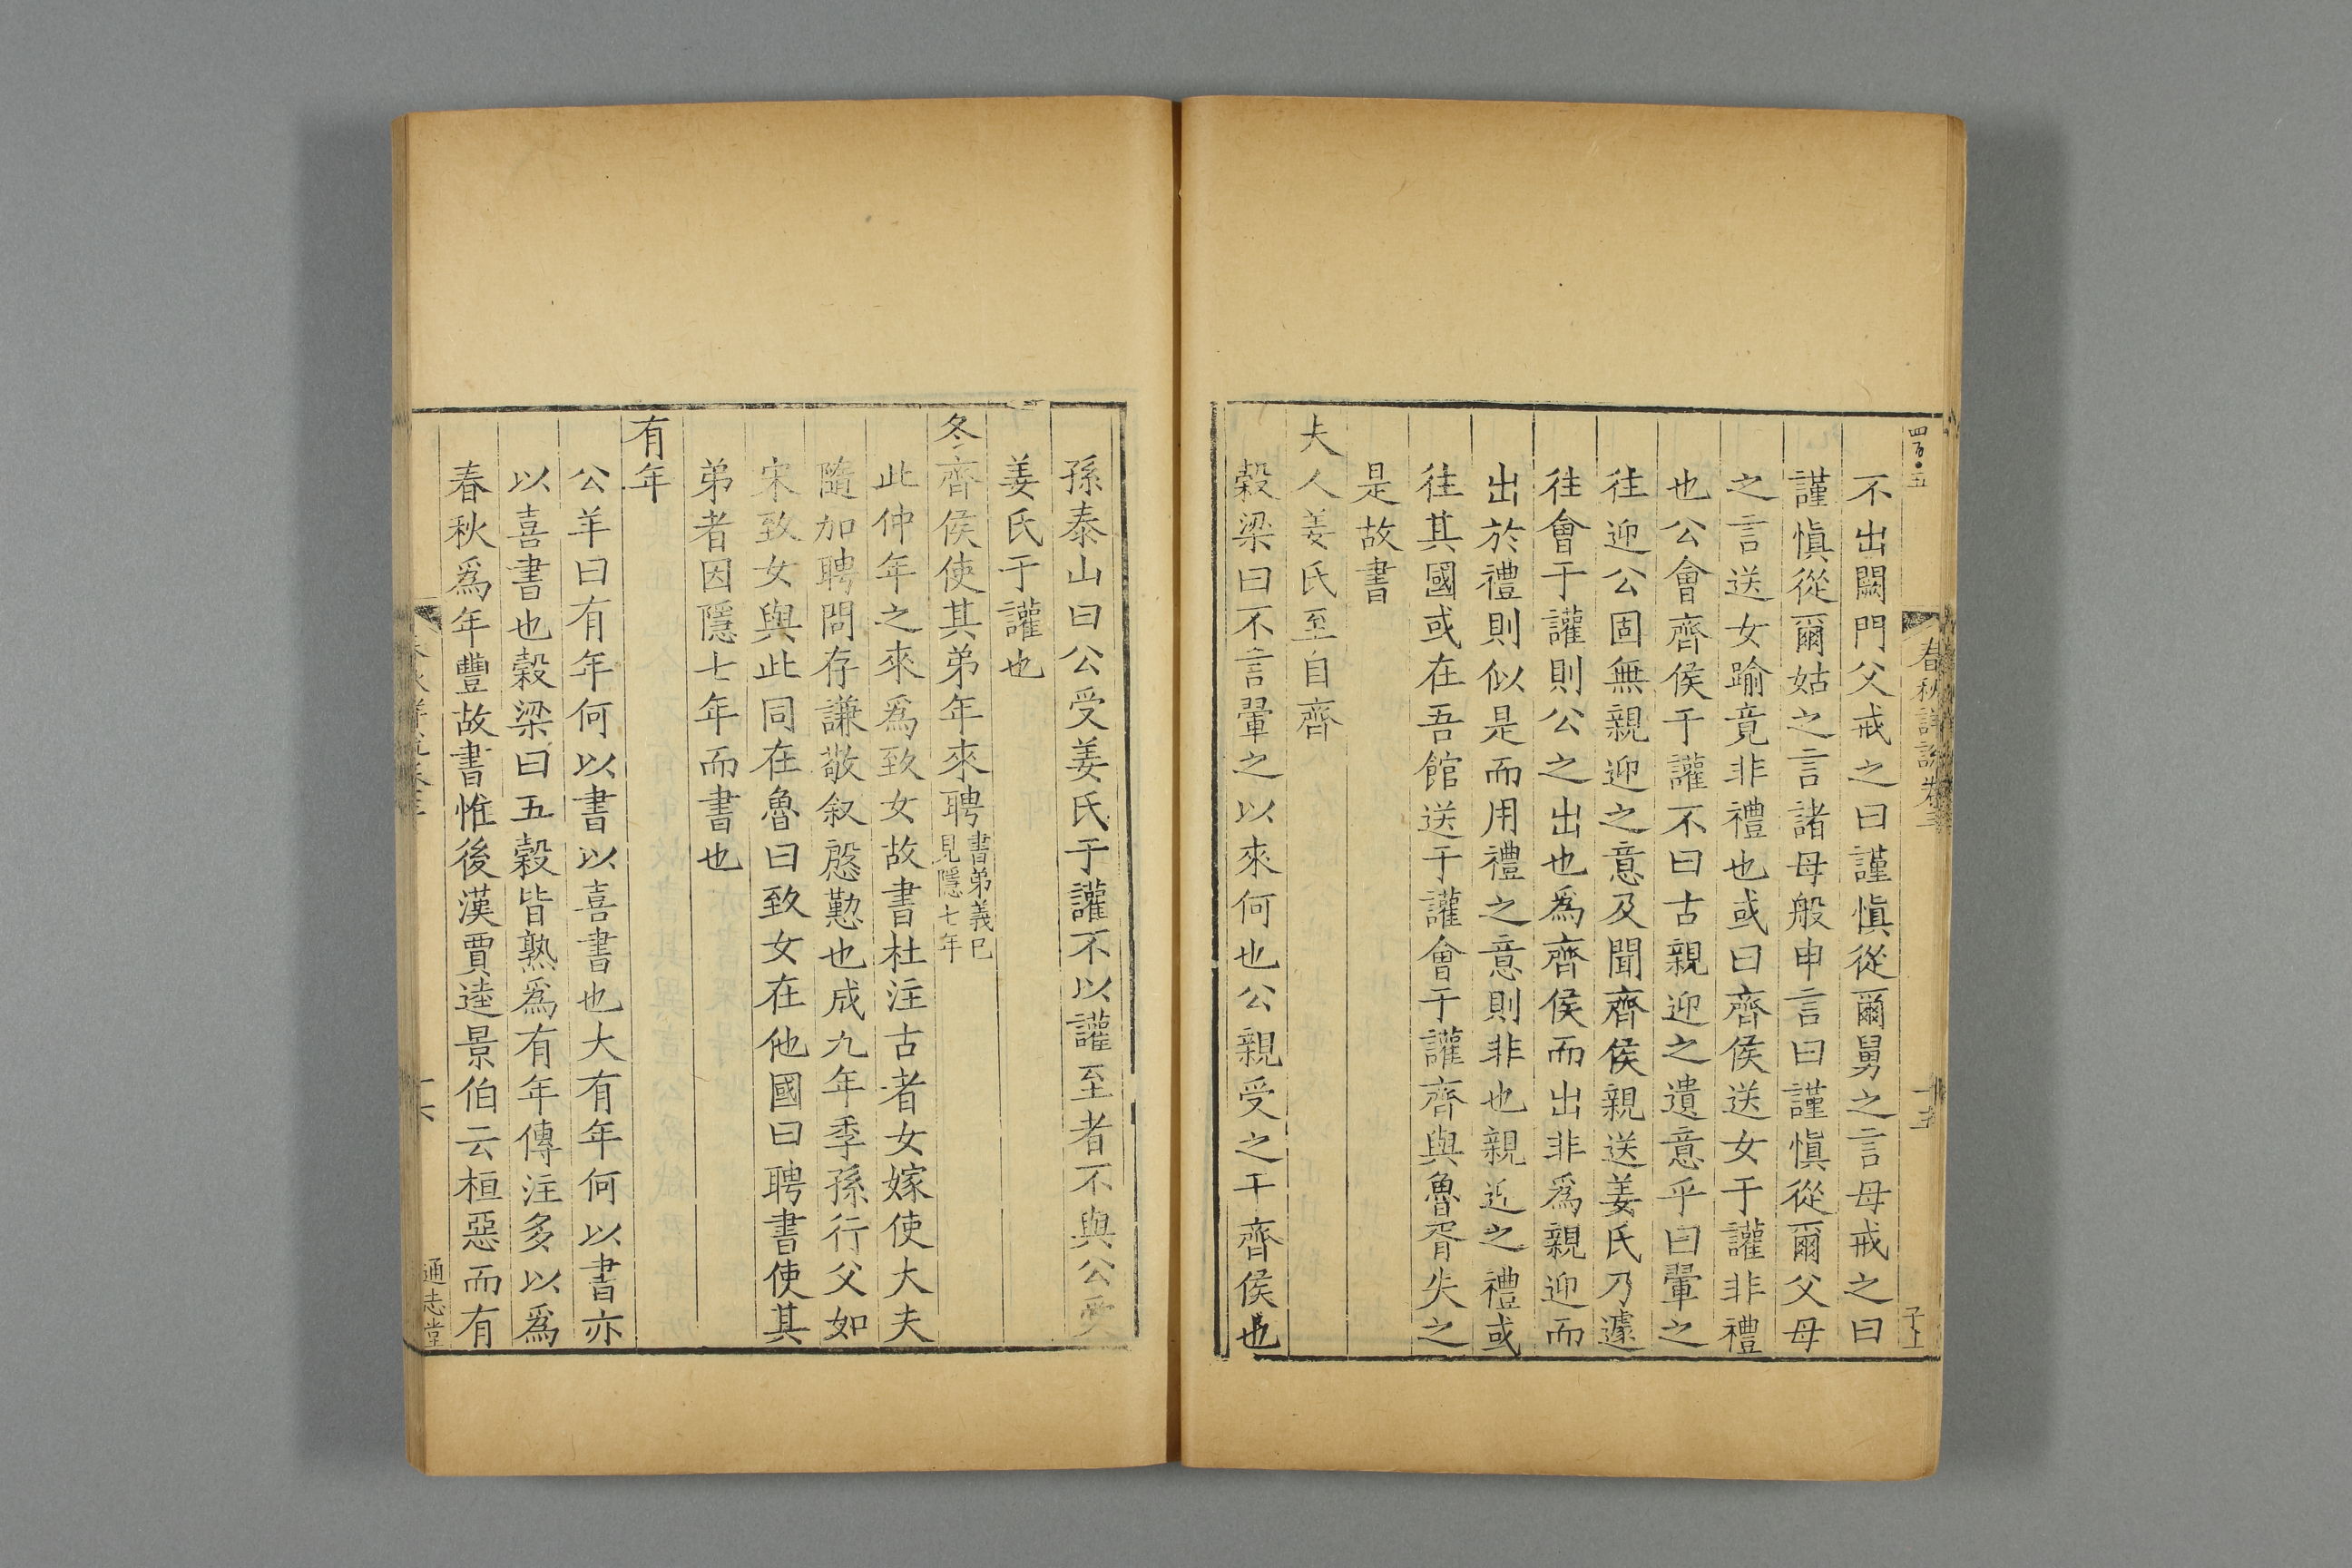 四百·五
春秋詳說卷三
十五
子上
不出闕門父戒之曰謹愼從爾舅之言母戒之曰
謹愼從爾姑之言諸母般申言曰謹愼從爾父母
之言送女踰竟非禮也或曰齊侯送女于讙非禮
也公會齊侯于讙不曰古親迎之遺意乎曰翬之
徃迎公固無親迎之意及聞齊侯親送姜氏乃遽
徃會于讙則公之出也爲齊侯而出非爲親迎而
出於禮則似是而用禮之意則非也親近之禮或
徃其國或在吾館送于讙會于讙齊與魯胥失之
是故書
夫人姜氏至自齊
糓梁曰不言翬之以來何也公親受之于齊侯也
孫泰山曰公受姜氏于讙不以讙至者不與公受
姜氏于讙也
冬齊侯使其弟年來聘書弟義已見隱七年
此仲年之來爲致女故書杜注古者女嫁使大夫
隨加聘問存謙敬叙慇懃也成九年季孫行父如
宋致女與此同在魯曰致女在他國曰聘書使其
弟者因隱七年而書也
有年
公羊曰有年何以書以喜書也大有年何以書亦
以喜書也糓梁曰五糓皆熟爲有年傳注多以爲
春秋爲年豐故書惟後漢賈逵景伯云桓惡而有
十六
通志堂